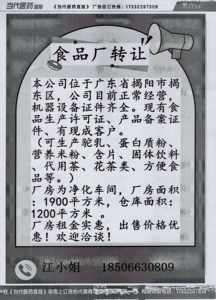 当代医药
《当代医药直医》 广告征订热线：17332287309
食品厂转让
本公司位于广东省揭阳市揭
东区，公司目前正常经营，
机器设备证件齐全。现有食
品生产许可证、产品备案证
件、有现成客户。
（可生产驼乳、蛋白质粉、
营养米粉、含片、固体饮料
、代用茶、花茶类、方便食
品等）。
厂房为净化车间，厂房面积
：1900平方米，仓库面积：
1200平方米 。
厂房租金实惠，出售价格优
惠！欢迎洽谈！
江小姐 18506630809